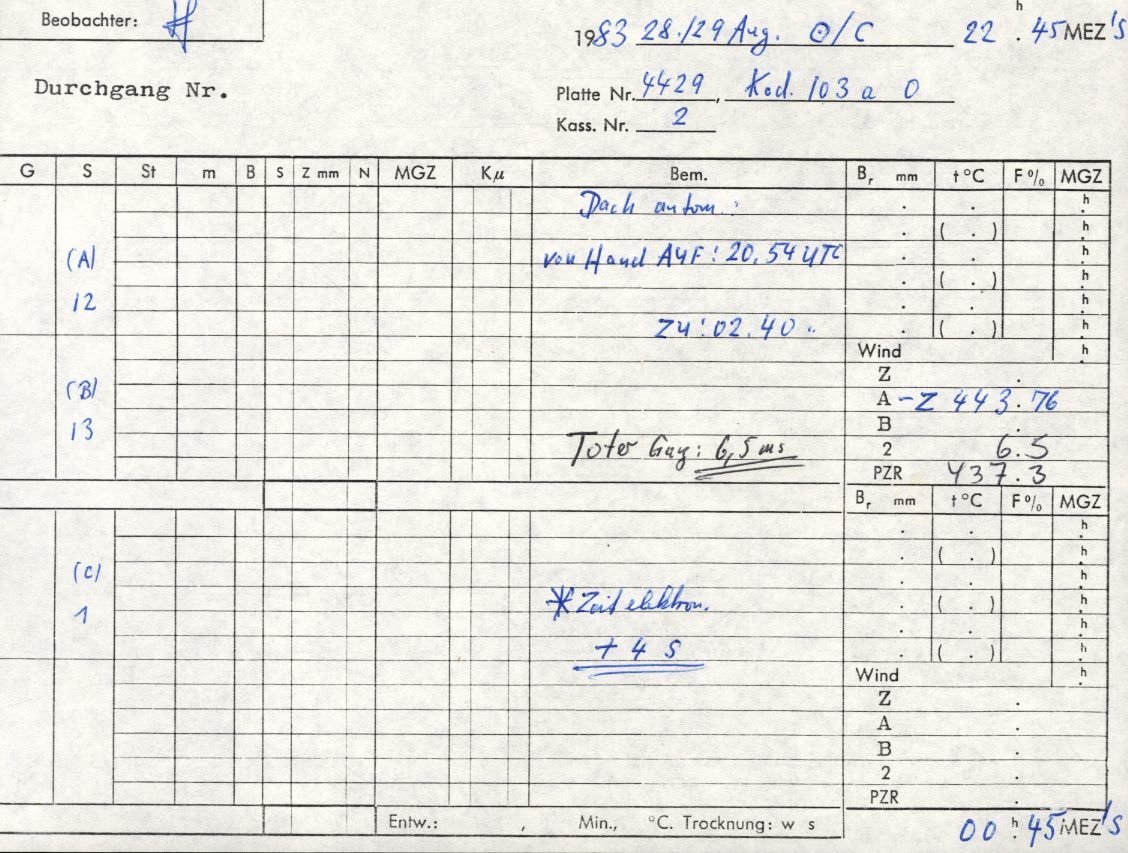 Beobachter:
1983 28./29 Aug. ⊙/C 22 h . 45 MEZ'S
Durchgang Nr.
Platte Nr. 4429, Kod. 103 a O
Kass. Nr. 2
G S St m B S Z mm N MGZ Kμ Bem. Br mm t °C F % MGZ
Dach autom. . . h
. ( . ) h
(A) von Hand AUF: 20.54 UTC . . h
. ( . ) h
12 . . h
Zu: 02.40 " . ( . ) h
Wind h
Z .
(B) A - Z 443.76
13 B .
Toter Gang: 6,5 ms 2 6.5
PZR 437.3
Br mm t °C F % MGZ
. . h
. ( . ) h
(C) . . h
* Zeit elektron. . ( . ) h
1 . . h
+ 4 s . ( . ) h
Wind h
Z .
A .
B .
2 .
PZR .
Entw.: , Min., °C. Trocknung: w s
00 h . 45 MEZ'S